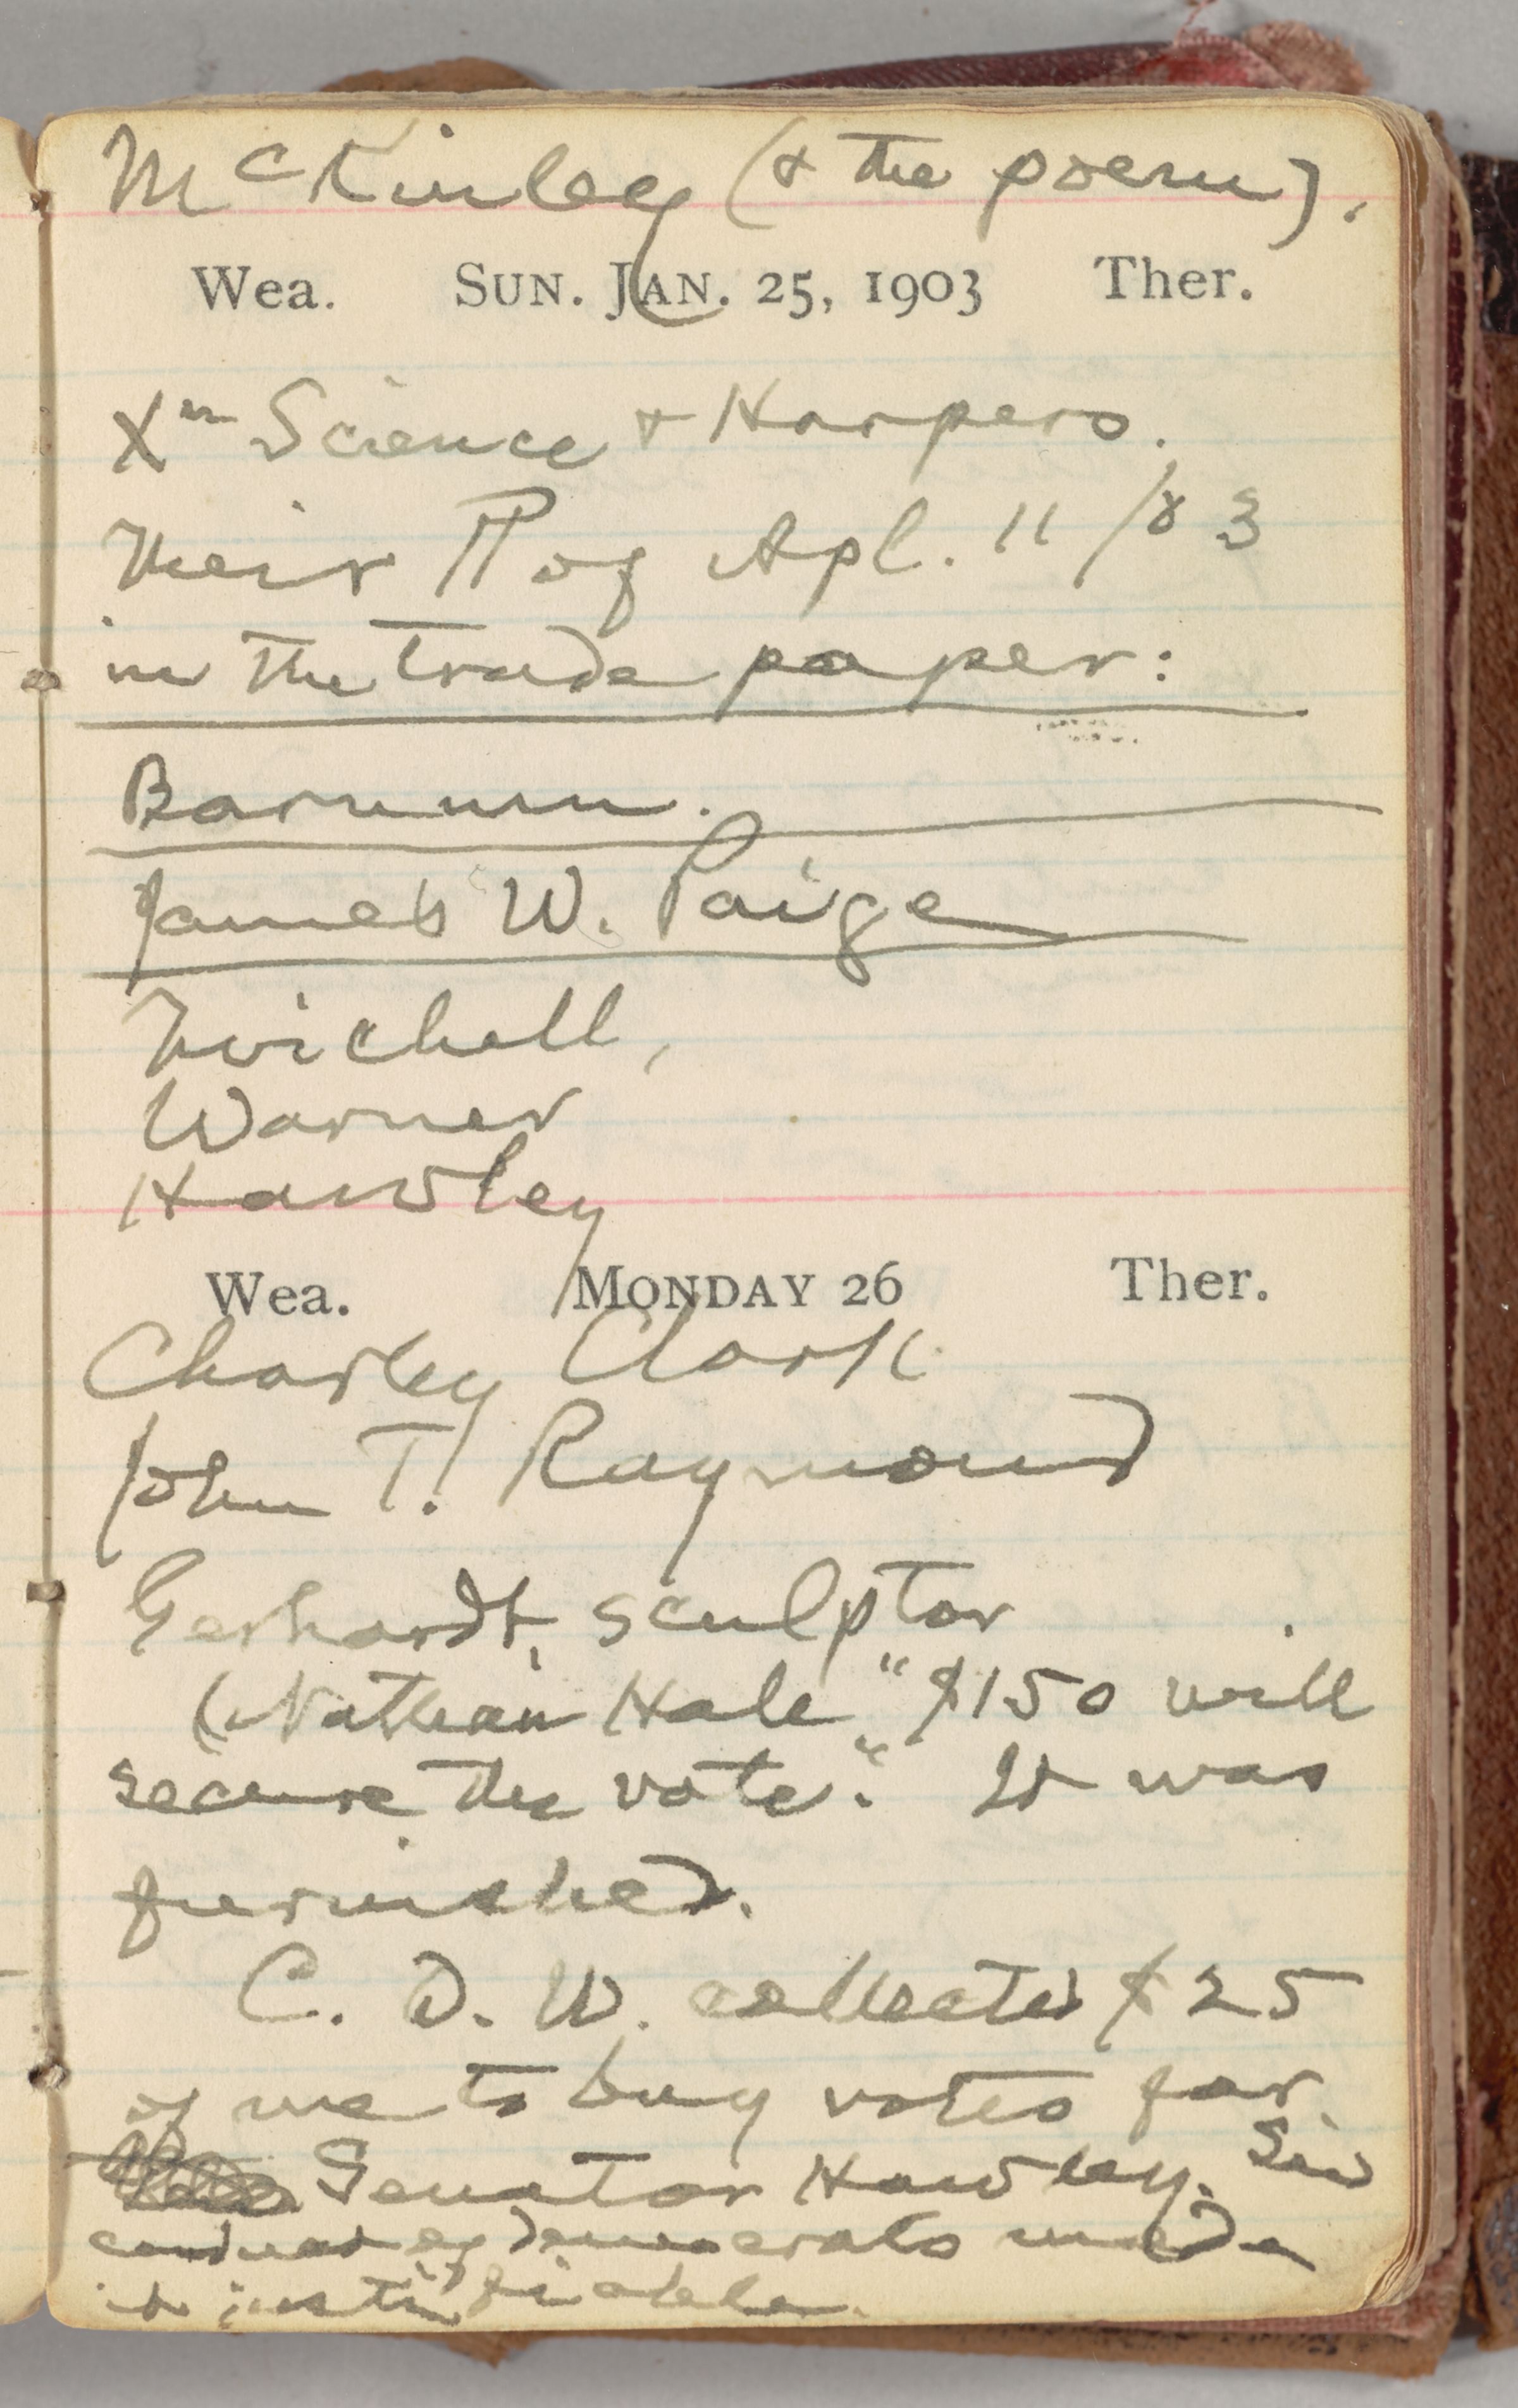 McKinley (& the poem).
Wea. SUN. JAN. 25, 1903 Ther.
Xn Science & Harpers.
Their ¶ of Apl. 11 /03
in the trade paper:
Barnum.
James W. Paige
Twichell,
Warner
Hawley
Wea. MONDAY 26 Ther.
Charley Clark
John T. Raymond
Gerhardt, sculptor
(Nathan Hale "$150 will
secure the vote." It was
furnished.
C. D. W. collected $25
of me to buy votes for
Senator Hawley. Sin
conduct of democrats made
it justifiable.